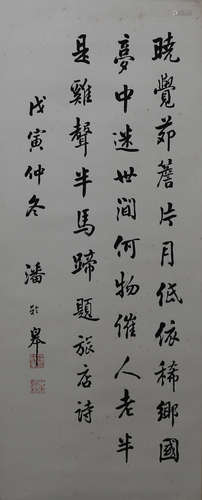 曉覺茆簷片月低依稀鄉國
夢中迷世間何物催人老半
是雞聲半馬蹄題旅店詩
戊寅仲冬 潘齡皋